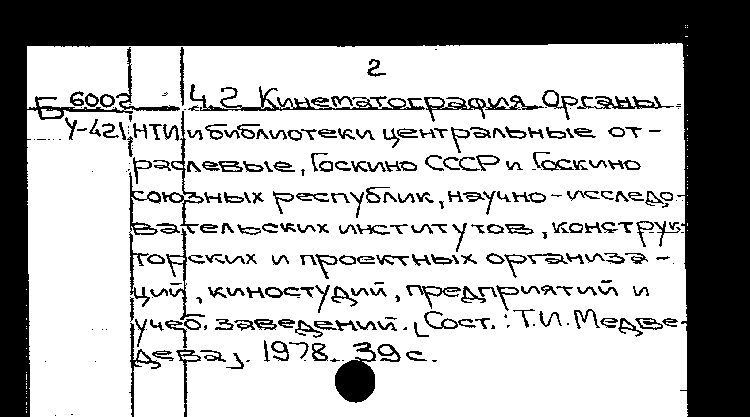 2
Б 6002 4.2 Кинематография. Органы
У-421 НТИ и библиотеки центральные от-
раслевые, Госкино СССР и Госкино
союзных республик, научно-исследо-
вательских институтов, конструк-
торских и проектных организа-
ций, киностудий, предприятий и
учеб. заведений. [Сост.: Т.И. Медве-
дева]. 1978. 39 с.